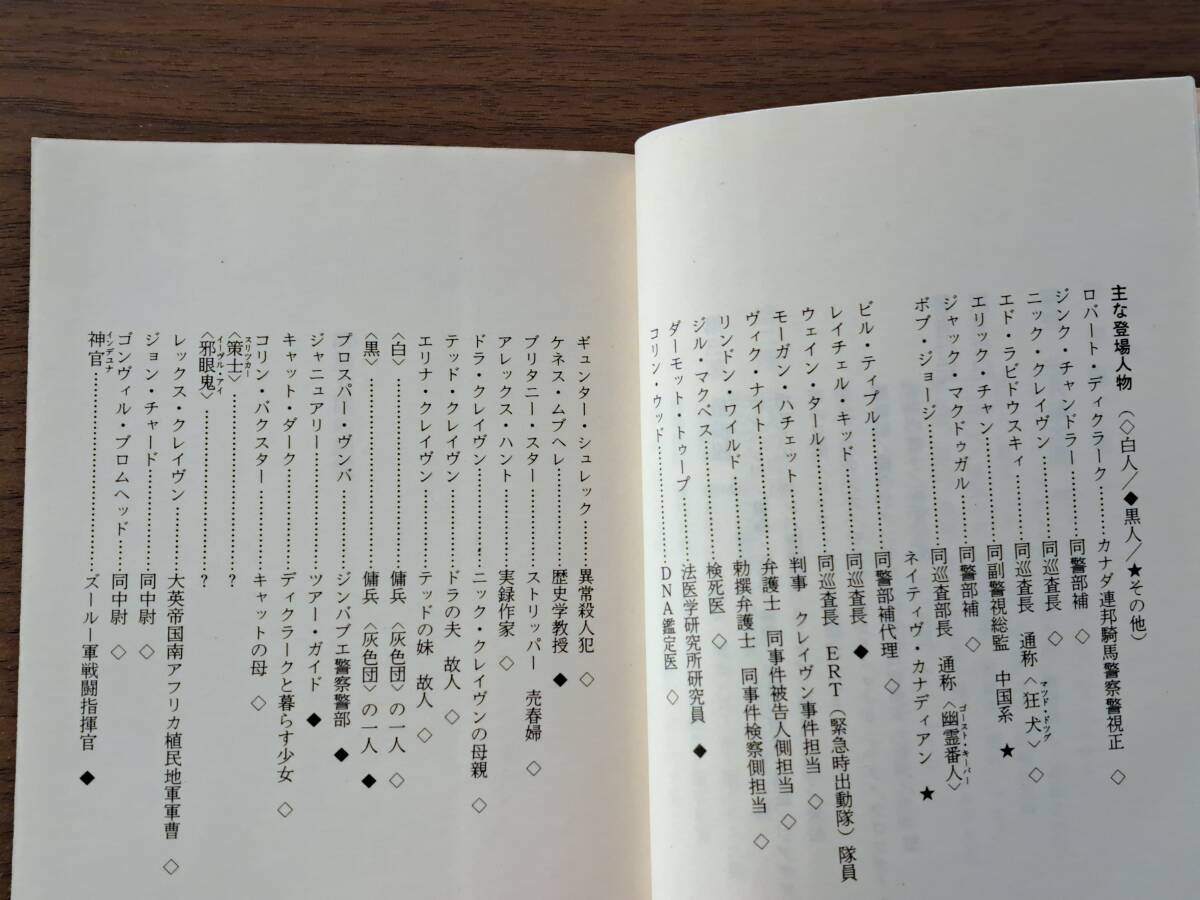 主な登場人物　（◇白人/◆黒人/★その他）
ロバート・ディクラーク…………カナダ連邦騎馬警察警視正　◇
ジンク・チャンドラー…………同警部補　◇
ニック・クレイヴン…………同巡査長　◇
エド・ラビドウスキィ…………同巡査長　通称〈狂犬マッド・ドッグ〉◇
エリック・チャン…………同副警視総監　中国系　★
ジャック・マクドゥガル…………同警部補　◇
ボブ・ジョージ…………同巡査部長　通称〈幽霊番人ゴースト・キーパー〉
ネイティヴ・カナディアン　★
ビル・ティプル…………同警部補代理　◇
レイチェル・キッド…………同巡査長　◆
ウェイン・タール…………同巡査長　ERT（緊急時出動隊）隊員
モーガン・ハチェット…………判事　クレイヴン事件担当　◇
ヴィク・ナイト…………弁護士　同事件被告人側担当　◇
リンドン・ワイルド…………勅撰弁護士　同事件検察側担当　◇
ジル・マクベス…………検死医　◇
ダーモット・トゥープ…………法医学研究所研究員　◆
コリン・ウッド…………DNA鑑定医　◇
ギュンター・シュレック…………異常殺人犯　◇
ケネス・ムブヘレ…………歴史学教授　◆
ブリタニー・スター…………ストリッパー　売春婦　◇
アレックス・ハント…………実録作家　◇
ドラ・クレイヴン…………ニック・クレイヴンの母親　◇
テッド・クレイヴン…………ドラの夫　故人　◇
エリナ・クレイヴン…………テッドの妹　故人　◇
〈白〉…………傭兵〈灰色団〉の一人　◇
〈黒〉…………傭兵〈灰色団〉の一人　◆
プロスパー・ヴンバ…………ジンバブエ警察警部　◆
ジャニュアリー…………ツアー・ガイド　◆
キャット・ダーク…………ディクラークと暮らす少女　◇
コリン・バクスター…………キャットの母　◇
〈策士スリッカー〉…………？
〈邪眼鬼イーヴル・アイ〉…………？
レックス・クレイヴン…………大英帝国南アフリカ植民地軍軍曹　◇
ジョン・チャード…………同中尉　◇
ゴンヴィル・ブロムヘッド…………同中尉　◇
神官インデュナ…………ズールー軍戦闘指揮官　◆